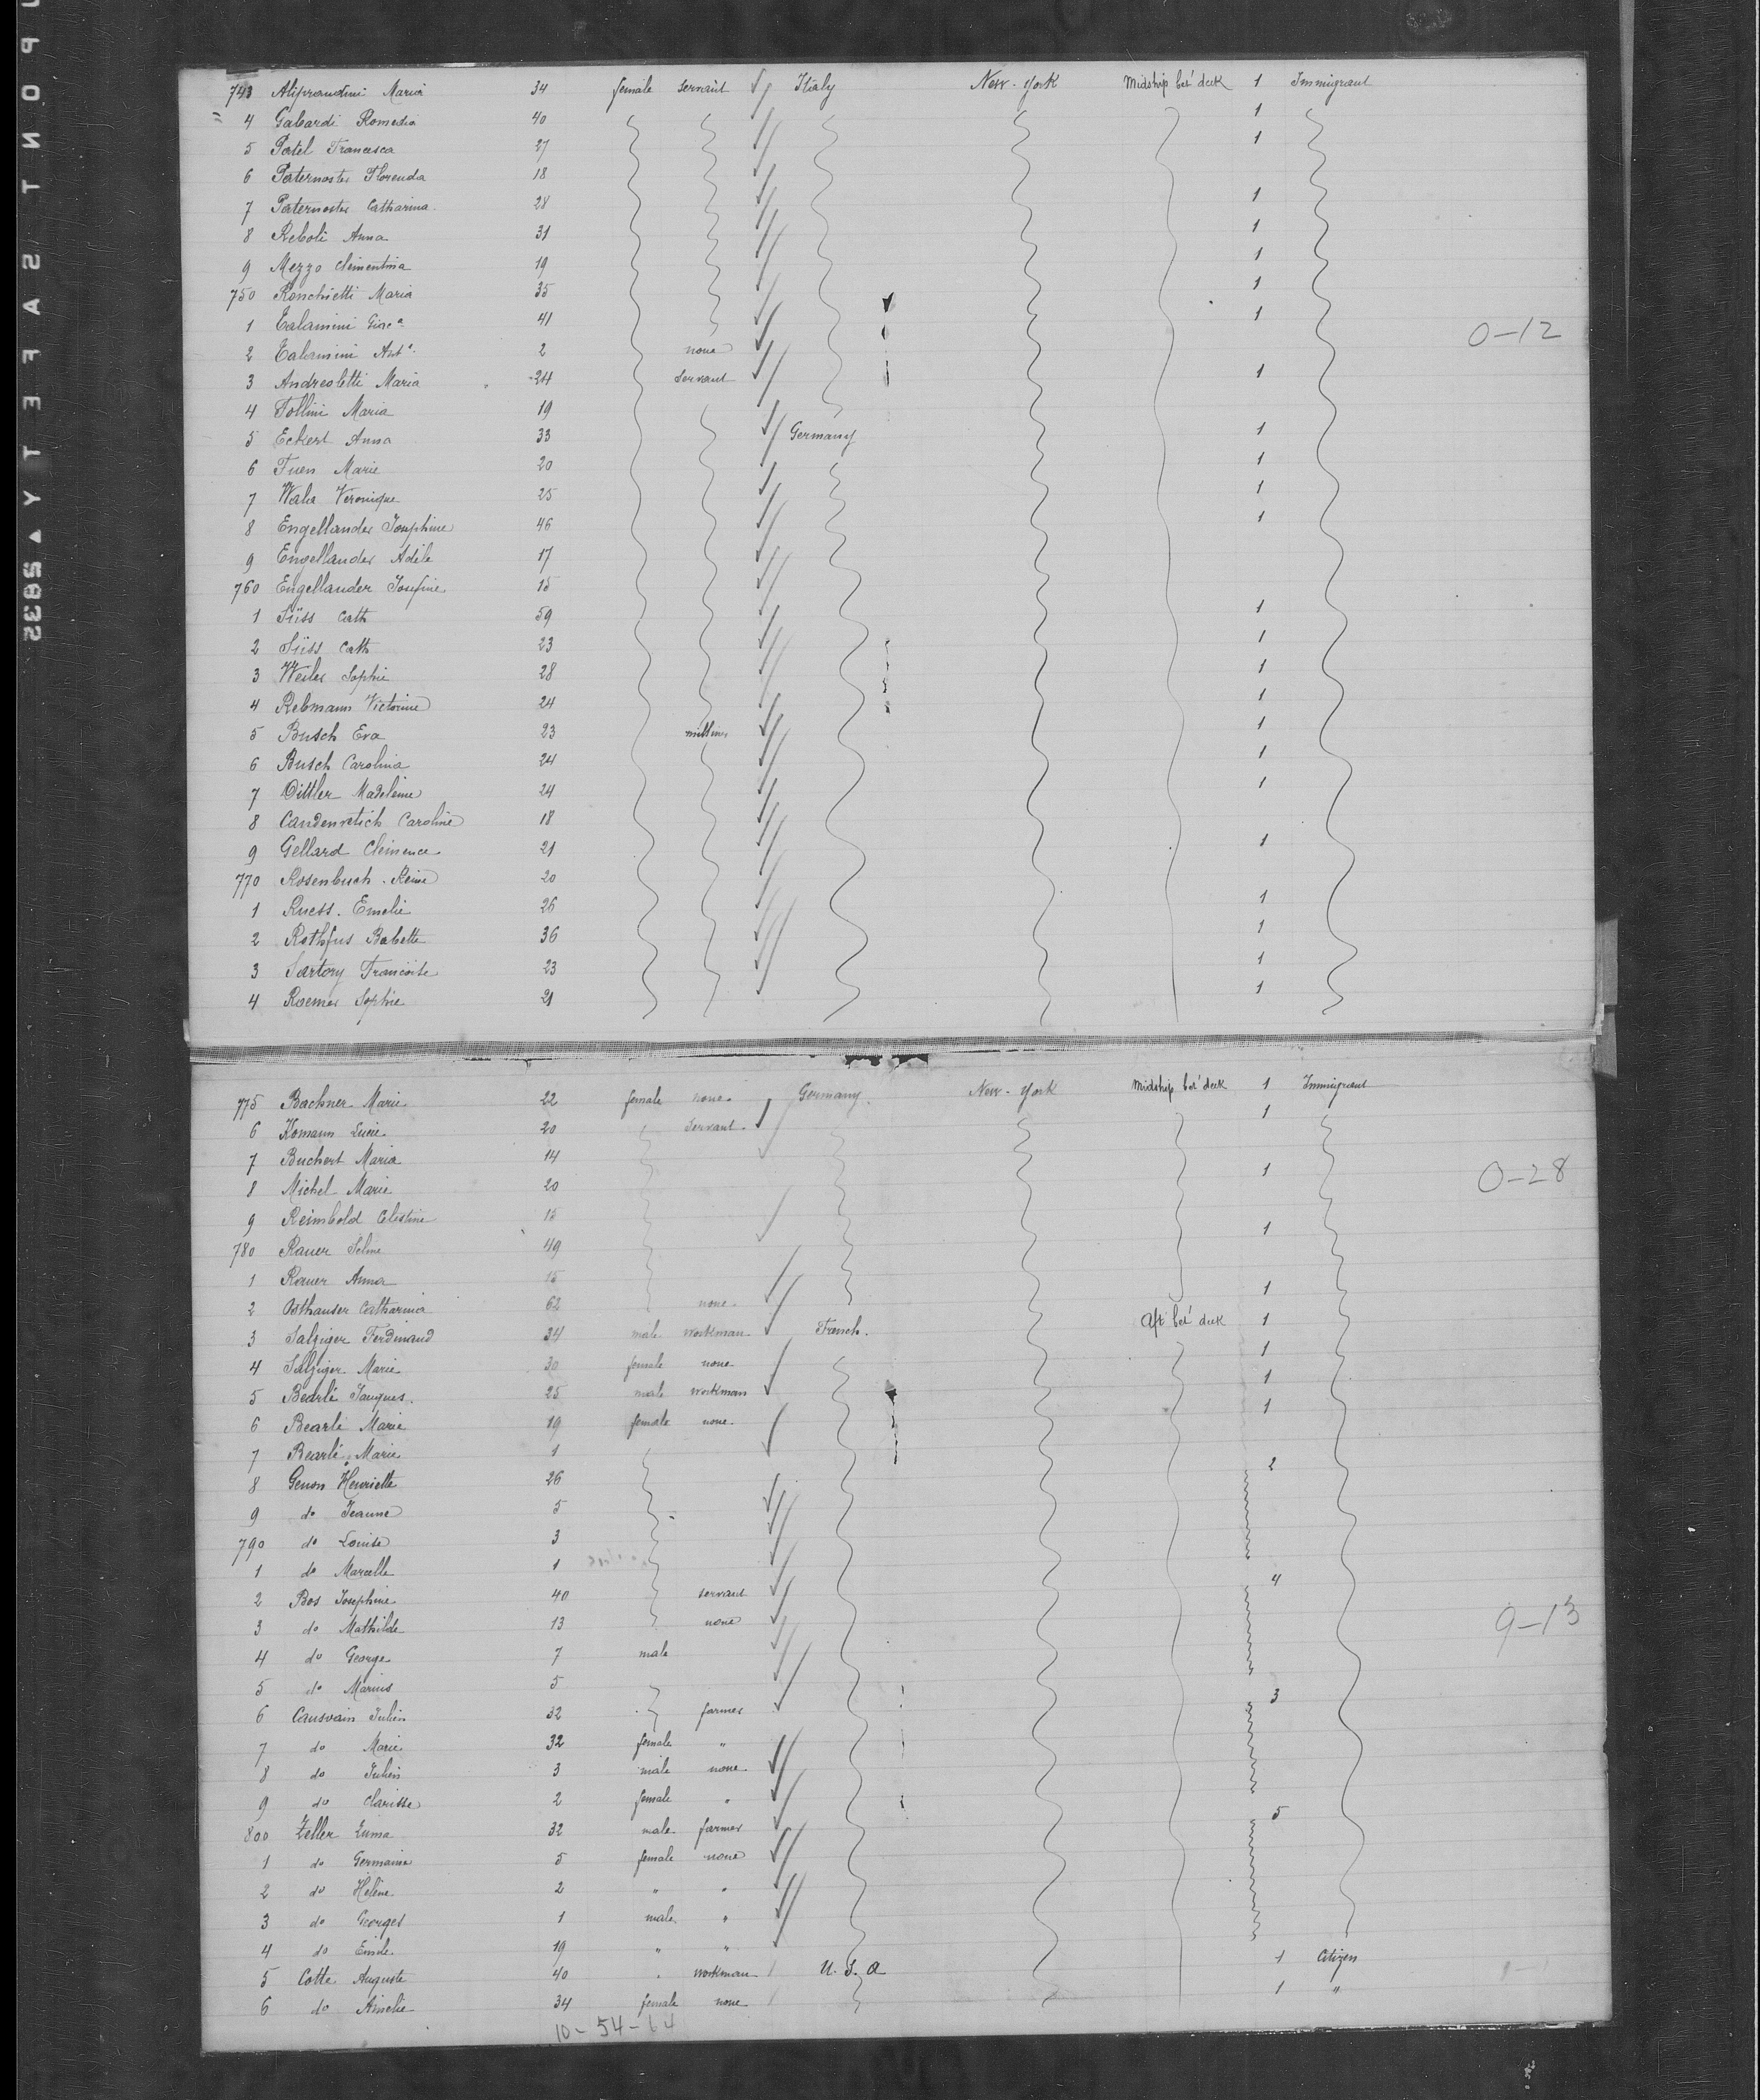 743 Aliprandini Maria 34 female servant Italy New-York Midship bet' deck 1 Immigrant
4 Gabardi Romedia 40 1
5 Patel Francesca 27 1
6 Paternoster Florenda 18
7 Paternoster Catharina 28 1
8 Reboli Anna 31 1
9 Mezzo Clementina 19 1
750 Ronchietti Maria 35 1
1 Calamini Giac a. 41 1
2 Calamini Ant a. 2 none
0-12
3 Andreoletti Maria 24 servant 1
4 Tollini Maria 19
5 Eckert Anna 33 Germany 1
6 Fuen Marie 20 1
7 Wala Veronique 25 1
8 Engellander Josephine 46 1
9 Engellander Adèle 17
760 Engellander Josefine 15
1 Süss Cath 59 1
2 Süss Cath 23 1
3 Weiler Sophie 28 1
4 Rebmann Victorine 24 1
5 Busch Eva 23 milliner 1
6 Busch Carolina 24 1
7 Dittler Madeleine 24 1
8 Caroline 18
9 Gellard Clemence 21 1
770 Rosenbuch Reine 20
1 Ruess. Emelie 26 1
2 Rothfus Babette 36 1
3 Sartory Francoise 23 1
4 Raemer Sophie 21 1
775 Bachner Marie 22 female none Germany New-York Midship bet' deck 1 Immigrant
6 Komann Lucie 20 servant 1
7 Buchert Maria 14
8 Michel Marie 20 1
0-28
9 Reimbold Celestine 15
780 Rauer Seline 49 1
1 Rauer Anna 15
2 Osthauser Catharina 62 none 1
3 Salziger Ferdinand 34 male workman French. Aft bet' deck 1
4 Salziger Marie 30 female none 1
5 Bearlé Jauques. 25 male workman 1
6 Bearlé Marie 19 female none 1
7 Bearlé Marie 1
8 Genon Henriette 26 2
9 do Jeanne 5
790 do Louise 3
1 do Marcelle 1
2 Bos Josephine 40 servant 4
3 do Mathilde 13 none
9-13
4 do George 7 male
5 do Marius 5
6 Causvain Julien 32 farmer 3
7 do Marie 32 female "
8 do Julien 3 male none
9 do Clarisse 2 female "
800 Zeller Zuma 32 male farmer 5
1 do Germaine 5 female none
2 do Hélène 2 " "
3 do Georges 1 male "
4 do Emile 19 " "
5 Cotte Auguste 40 " workman U.S.A 1 Citizen
6 do Amelie 34 female none 1 "
10-54-64